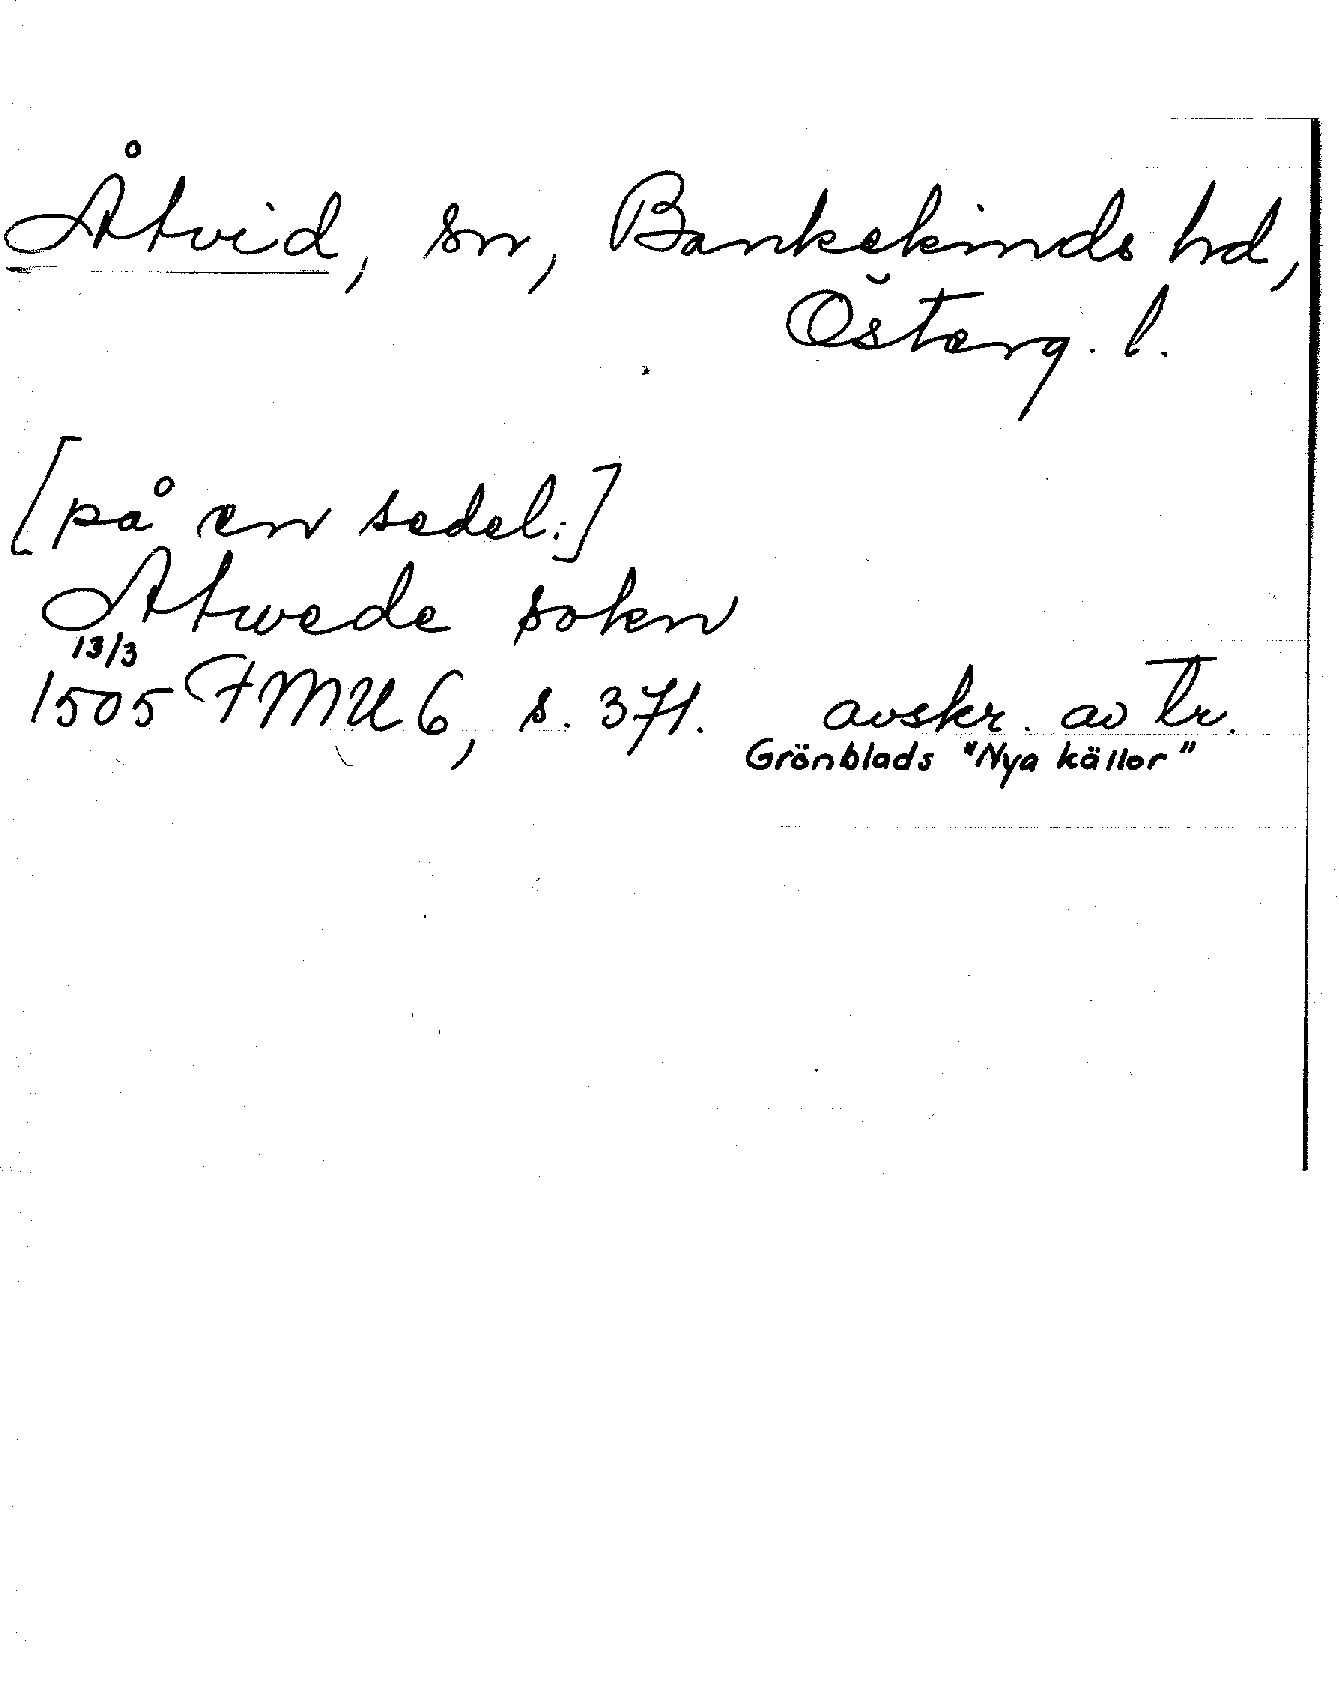 Åtvid, sn, Bankekinds hd,
Österg. l.
[på en sedel:]
Atwede sokn
13/3
1505 FMU 6, s. 371. avskr. av tr.
Grönblads "Nya källor"